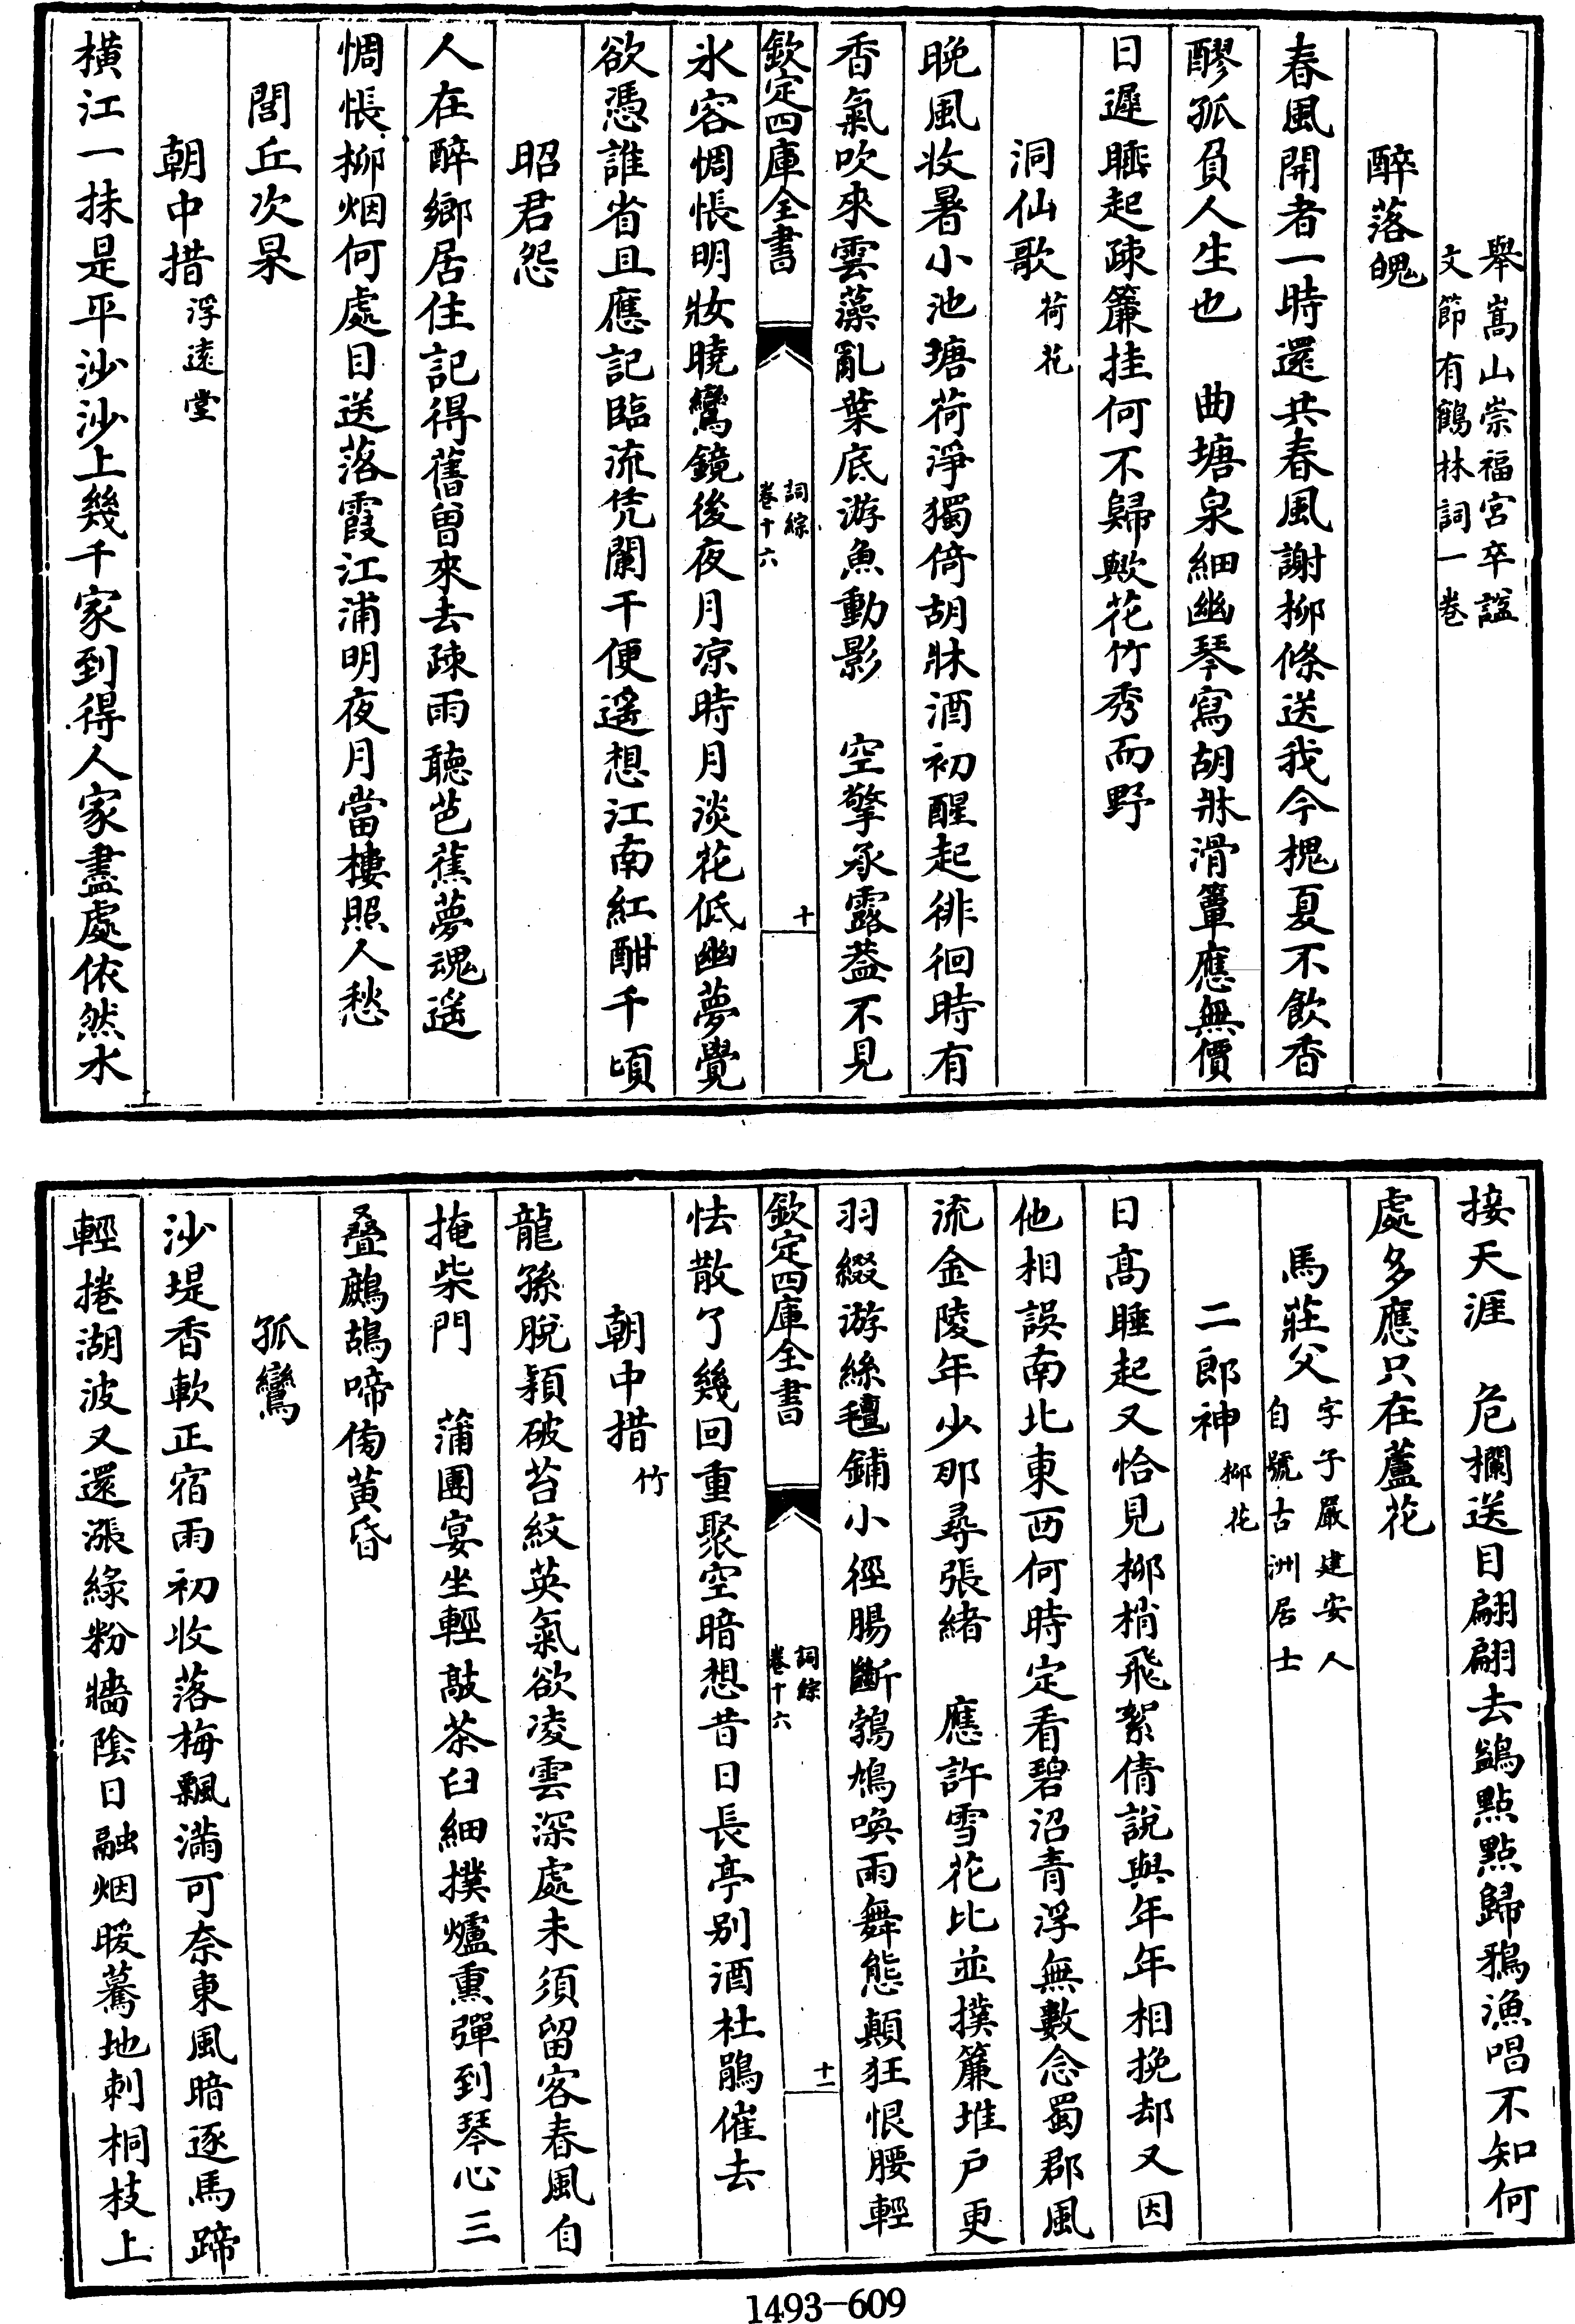 舉嵩山崇福宮卒諡
文節有鶴林詞一卷
醉落魄
春風開者一時還共春風謝柳條送我今槐夏不飲香
醪孤負人生也　曲塘泉細幽琴寫胡牀滑簟應無價
日遲睡起疎簾挂何不歸歟花竹秀而野
洞仙歌荷花
晚風收暑小池塘荷淨獨倚胡牀酒初醒起徘徊時有
香氣吹來雲藻亂葉底游魚動影　空擎承露蓋不見
欽定四庫全書
詞綜
卷十六
十
氷容惆悵明妝曉鸞鏡後夜月凉時月淡花低幽夢覺
欲憑誰省且應記臨流凭闌干便遥想江南紅酣千頃
昭君怨
人在醉鄉居住記得舊曾來去疎雨聽芭蕉夢魂遥
惆悵柳烟何處目送落霞江浦明夜月當樓照人愁
閭丘次杲
朝中措浮遠堂
橫江一抹是平沙沙上幾千家到得人家盡處依然水
接天涯　危欄送目翩翩去鷁點點歸鴉漁唱不知何
處多應只在蘆花
馬莊父字子嚴建安人
自號古洲居士
二郎神柳花
日高睡起又恰見柳梢飛絮倩說與年年相挽却又因
他相誤南北東西何時定看碧沼青浮無數念蜀郡風
流金陵年少那尋張緒　應許雪花比並撲簾堆戶更
羽綴游絲氊鋪小徑腸斷鵓鳩喚雨舞態顛狂恨腰輕
欽定四庫全書
詞綜
卷十六
十一
怯散了幾回重聚空暗想昔日長亭别酒杜鵑催去
朝中措竹
龍孫脫穎破苔紋英氣欲凌雲深處未須留客春風自
掩柴門　蒲團宴坐輕敲茶臼細撲爐熏彈到琴心三
叠鷓鴣啼傍黄昏
孤鸞
沙堤香軟正宿雨初收落梅飄滿可奈東風暗逐馬蹄
輕捲湖波又還漲綠粉牆陰日融烟暖驀地刺桐枝上
1493—609